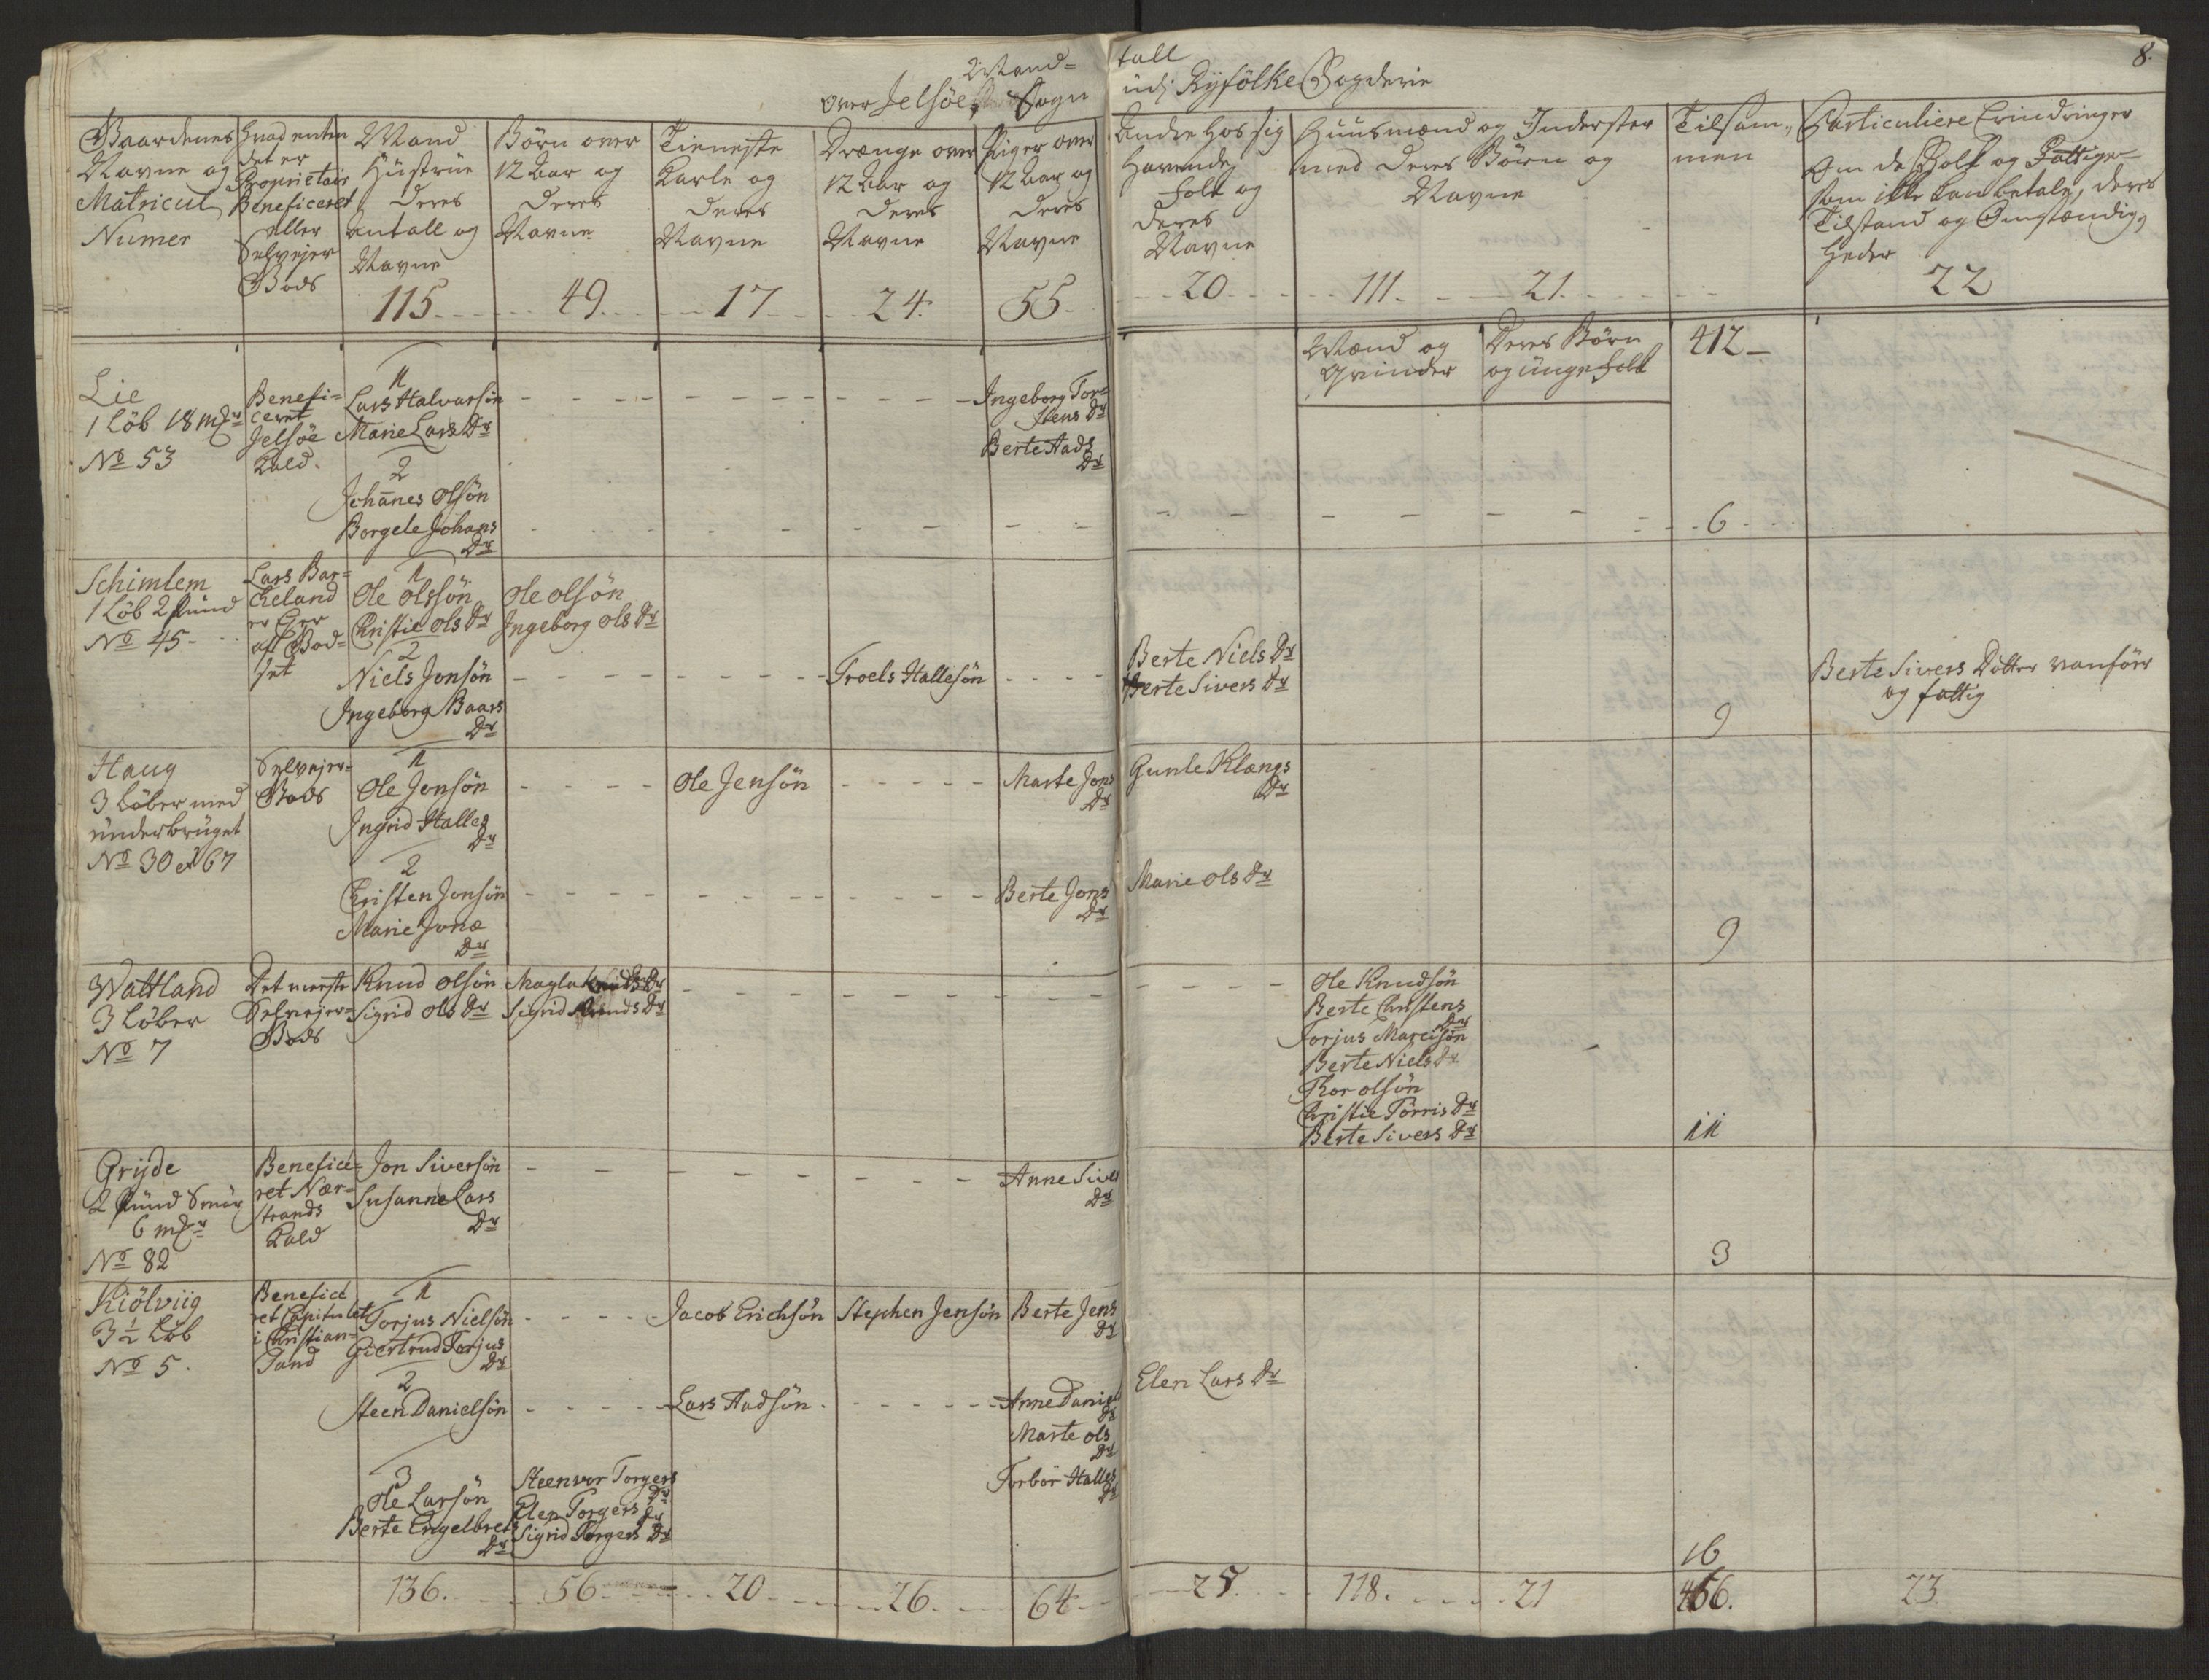 Mand-
tall
8.
over Jelsøe Sogn
udj Ryfölke Fogderie
Gaardenes
Navne og
Matricul
Numer
hvad enten
det er
Proprietair
Beneficeret
eller
Selvejer
Gods
Mand
Hüstrüe
Deres
Antall og
Navne
115
Börn over
12 Aar og
Deres
Navne
49
Tieneste
Karle og
Deres
Navne
17
Drænge over
12 Aar og
Deres
Navne
24
Piger over
12 Aar og
Deres
Navne
55
Andre hos sig
Havende
folk og
Deres
Navne
20
Huusmænd og Inderster
med Deres Börn og
Navne
111
21
Tilsam-
men
Particuliere Erindringer
Om de Folk og Fattige
som ikke kan betale, deres
Tilstand og Omstændig-
heder
22
Mænd og
Qvinder
Deres Börn
og unge folk
412
Lie
1 Löb 18 mrk
No 53
Benefi-
ceret
Jelsöe
Kald
1
Lars Halvorsön
Marie Lars Dr
2
Johanes Olsön
Borgele Johans
Dr
Ingeborg Tor-
stens Dr
Berte Aads
Dr
6
Schimlem
1 Löb 2 pund
No 45
Lars Bar-
keland
er Ejer
af God-
set
1
Ole Olssön
Christie Ols Dr
2
Niels Jonsön
Ingeborg Baars
Dr
Ole Olsön
Ingeborg Ols Dr
Troels Hallesön
Berte Niels Dr
Berte Sivers Dr
9
Berte Sivers Dotter vanför
og fattig
Haug
3 Löber med
underbruget
No 30 et 67
Selvejer-
Gods
1
Ole Jonsön
Ingrid Halles
Dr
2
Christen Jonsön
Marie Jonæ
Dr
Ole Jensön
Marte Jons
Dr
Berte Jons
Dr
Gunle Klængs
Dr
Marie Ols Dr
9
Wattland
3 Löber
No 7
Det meeste
Selvejer-
Gods
Knud Olsön
Sigrid Ols Dr
Magla Knuds Dr
Sigrid Knuds Dr
Ole Knudsön
Berte Christens
Dr
Torjus Mareisön
Berte Niels Dr
Thor Olsön
Christie Törris Dr
Berte Sivers Dr
11
Grijde
2 pund Smör
6 mrk
No 82
Benefice-
ret Nær-
strands
Kald
Jon Siversön
Susanne Lars
Dr
Anne Sivers
Dr
3
Kiölviig
3 1/2 Löb
No 5.
Benefice
ret Capitulet
i Christian-
sand
1
Torjus Nielsön
Giertrud Torjus
Dr
2
Steen Danielsön
3
Ole Larsön
Berte Engelbrets
Dr
Steenvor Torgers
Dr
Elen Torgers Dr
Sigrid Torgers Dr
Jacob Erichsön
Lars Aadsön
Stephen Jensön
Berte Jens
Dr
Anne Daniels
Dr
Marte Ols
Dr
Torbor Halles
Dr
Elen Lars Dr
16
136.
56
20
26.
64
25.
118.
21
466.
23